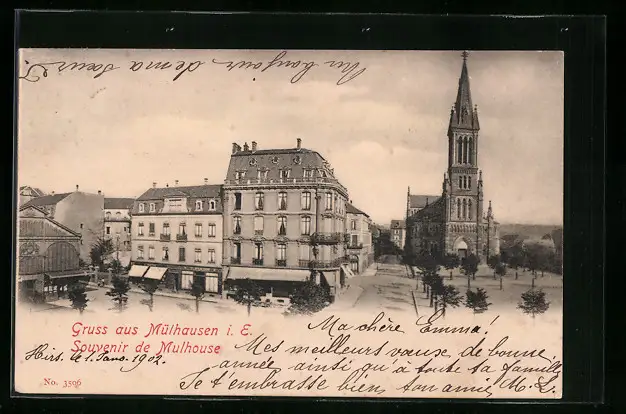 Un bonjour de ma sœur
Gruss aus Mülhausen i. E.
Souvenir de Mulhouse
Hirs. le 1. Janv. 1902.
No. 3506
Ma chère Emma!
Mes meilleurs vœux de bonne
année ainsi qu'à toute ta famille
Je t'embrasse bien, ton amie, M. L.